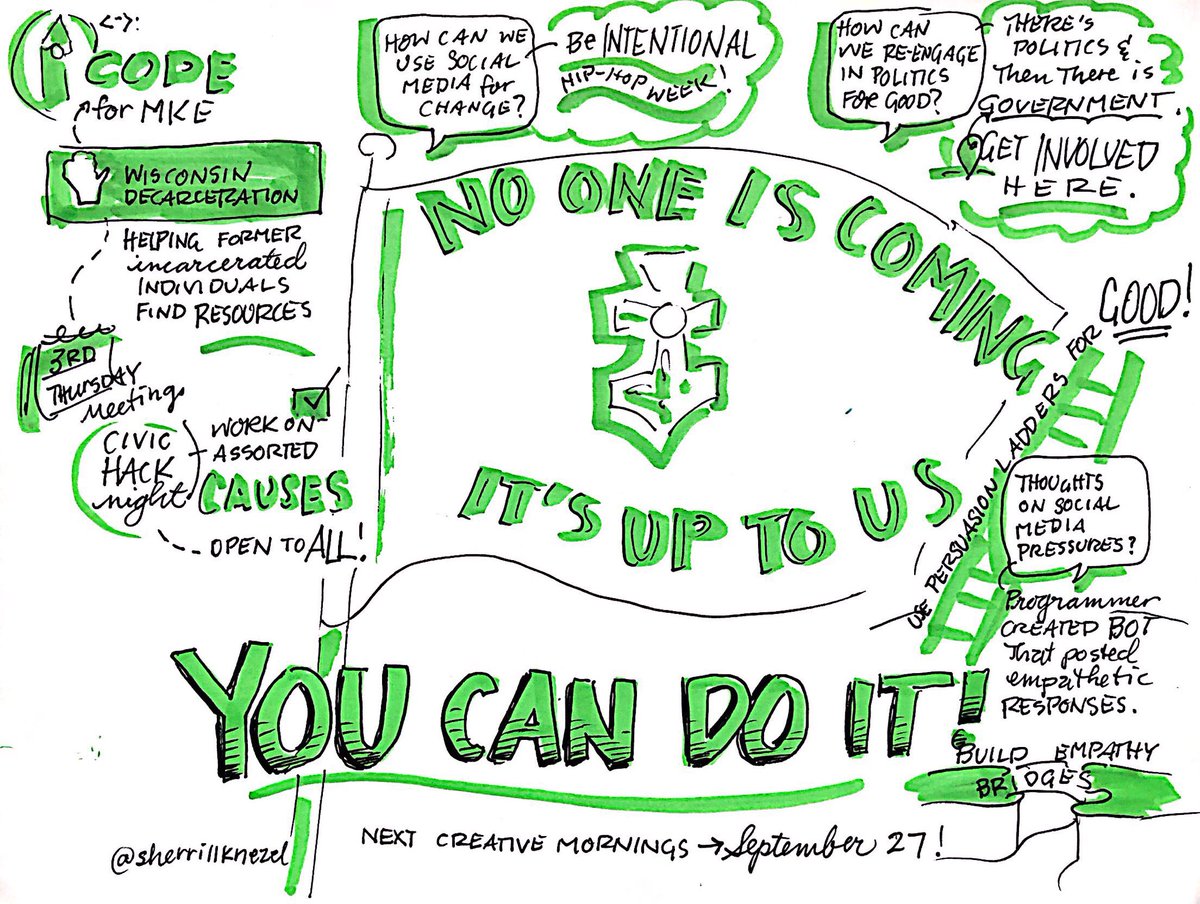 <->:
CODE
for MKE
WISCONSIN
DECARCERATION
HELPING FORMER
incarcerated
INDIVIDUALS
FIND RESOURCES
3RD
THURSDAY
Meetings
CIVIC
HACK
night
WORK ON
ASSORTED
CAUSES
OPEN TO ALL!
HOW CAN WE
USE SOCIAL
MEDIA for
CHANGE?
Be INTENTIONAL
HIP-HOP WEEK!
HOW CAN
WE RE-ENGAGE
IN POLITICS
FOR GOOD?
THERE'S
POLITICS &
Then There is
GOVERNMENT.
GET INVOLVED
HERE.
NO ONE IS COMING
IT'S UP TO US
USE PERSUASION LADDERS FOR
GOOD!
THOUGHTS
ON SOCIAL
MEDIA
PRESSURES?
Programmer
CREATED BOT
That posted
empathetic
RESPONSES.
YOU CAN DO IT!
BUILD EMPATHY
BRIDGES
@sherrillknezel
NEXT CREATIVE MORNINGS → September 27!